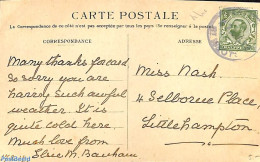 CARTE POSTALE
La Correspondance au recto n'est pas acceptée par tous les pays
CORRESPONDANCE
ADRESSE
Many thanks for card.
So sorry you are
having such awful
weather. It is
quite cold here.
Much love from
Elsie M. Banham
Miss Nash,
4 Selborne Place,
Littlehampton